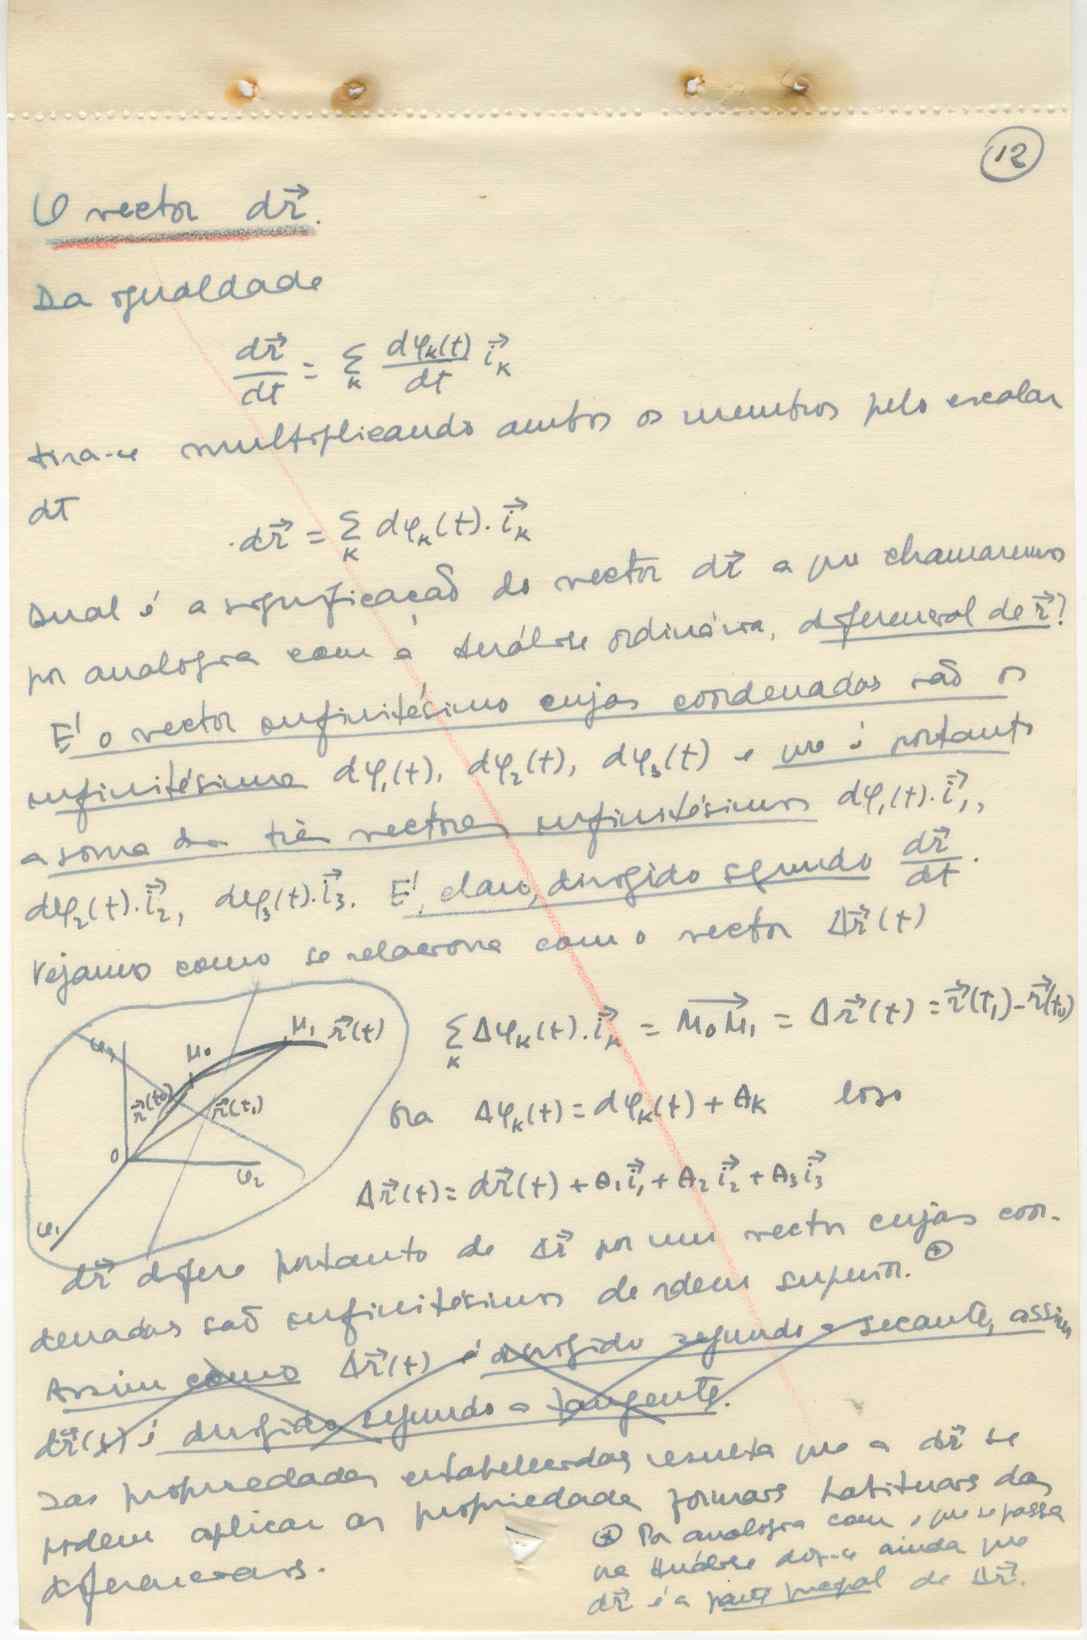 12
O vector d\vec{r}.
Da igualdade
\frac{d\vec{r}}{dt} = \sum_k \frac{dφ_k(t)}{dt} \vec{i}_k
tira-se multiplicando ambos os membros pelo escalar
dt
d\vec{r} = \sum_k dφ_k(t). \vec{i}_k
Qual é a significação do vector d\vec{r} a que chamaremos
por analogia com a Análise ordinária, diferencial de \vec{r}?
É o vector infinitésimo cujas coordenadas são os
infinitésimos dφ_1(t), dφ_2(t), dφ_3(t) e que é portanto
a soma dos três vectores infinitésimos dφ_1(t).\vec{i}_1,
dφ_2(t).\vec{i}_2, dφ_3(t).\vec{i}_3. É, claro, dirigido segundo \frac{d\vec{r}}{dt}.
Vejamos como se relaciona com o vector Δ\vec{r}(t)
M_0 M_1 \vec{r}(t)
\vec{r}(t_0) \vec{r}(t_1)
O
\sum_k Δφ_k(t).\vec{i}_k = \overrightarrow{M_0M_1} = Δ\vec{r}(t) = \vec{r}(t_1) - \vec{r}(t_0)
Ora Δφ_k(t) = dφ_k(t) + A_k logo
Δ\vec{r}(t) = d\vec{r}(t) + A_1\vec{i}_1 + A_2\vec{i}_2 + A_3\vec{i}_3
d\vec{r} difere portanto de Δ\vec{r} por um vector cujas coor-
denadas são infinitésimos de ordem superior. ⊕
Assim como Δ\vec{r}(t) é dirigido segundo a secante, assim
d\vec{r}(t) é dirigido segundo a tangente.
Das propriedades estabelecidas resulta que a d\vec{r} se
podem aplicar as propriedades formais habituais das
diferenciais.
⊕ Por analogia com o que se passa
na Análise diz-se ainda que
d\vec{r} é a parte principal de Δ\vec{r}.